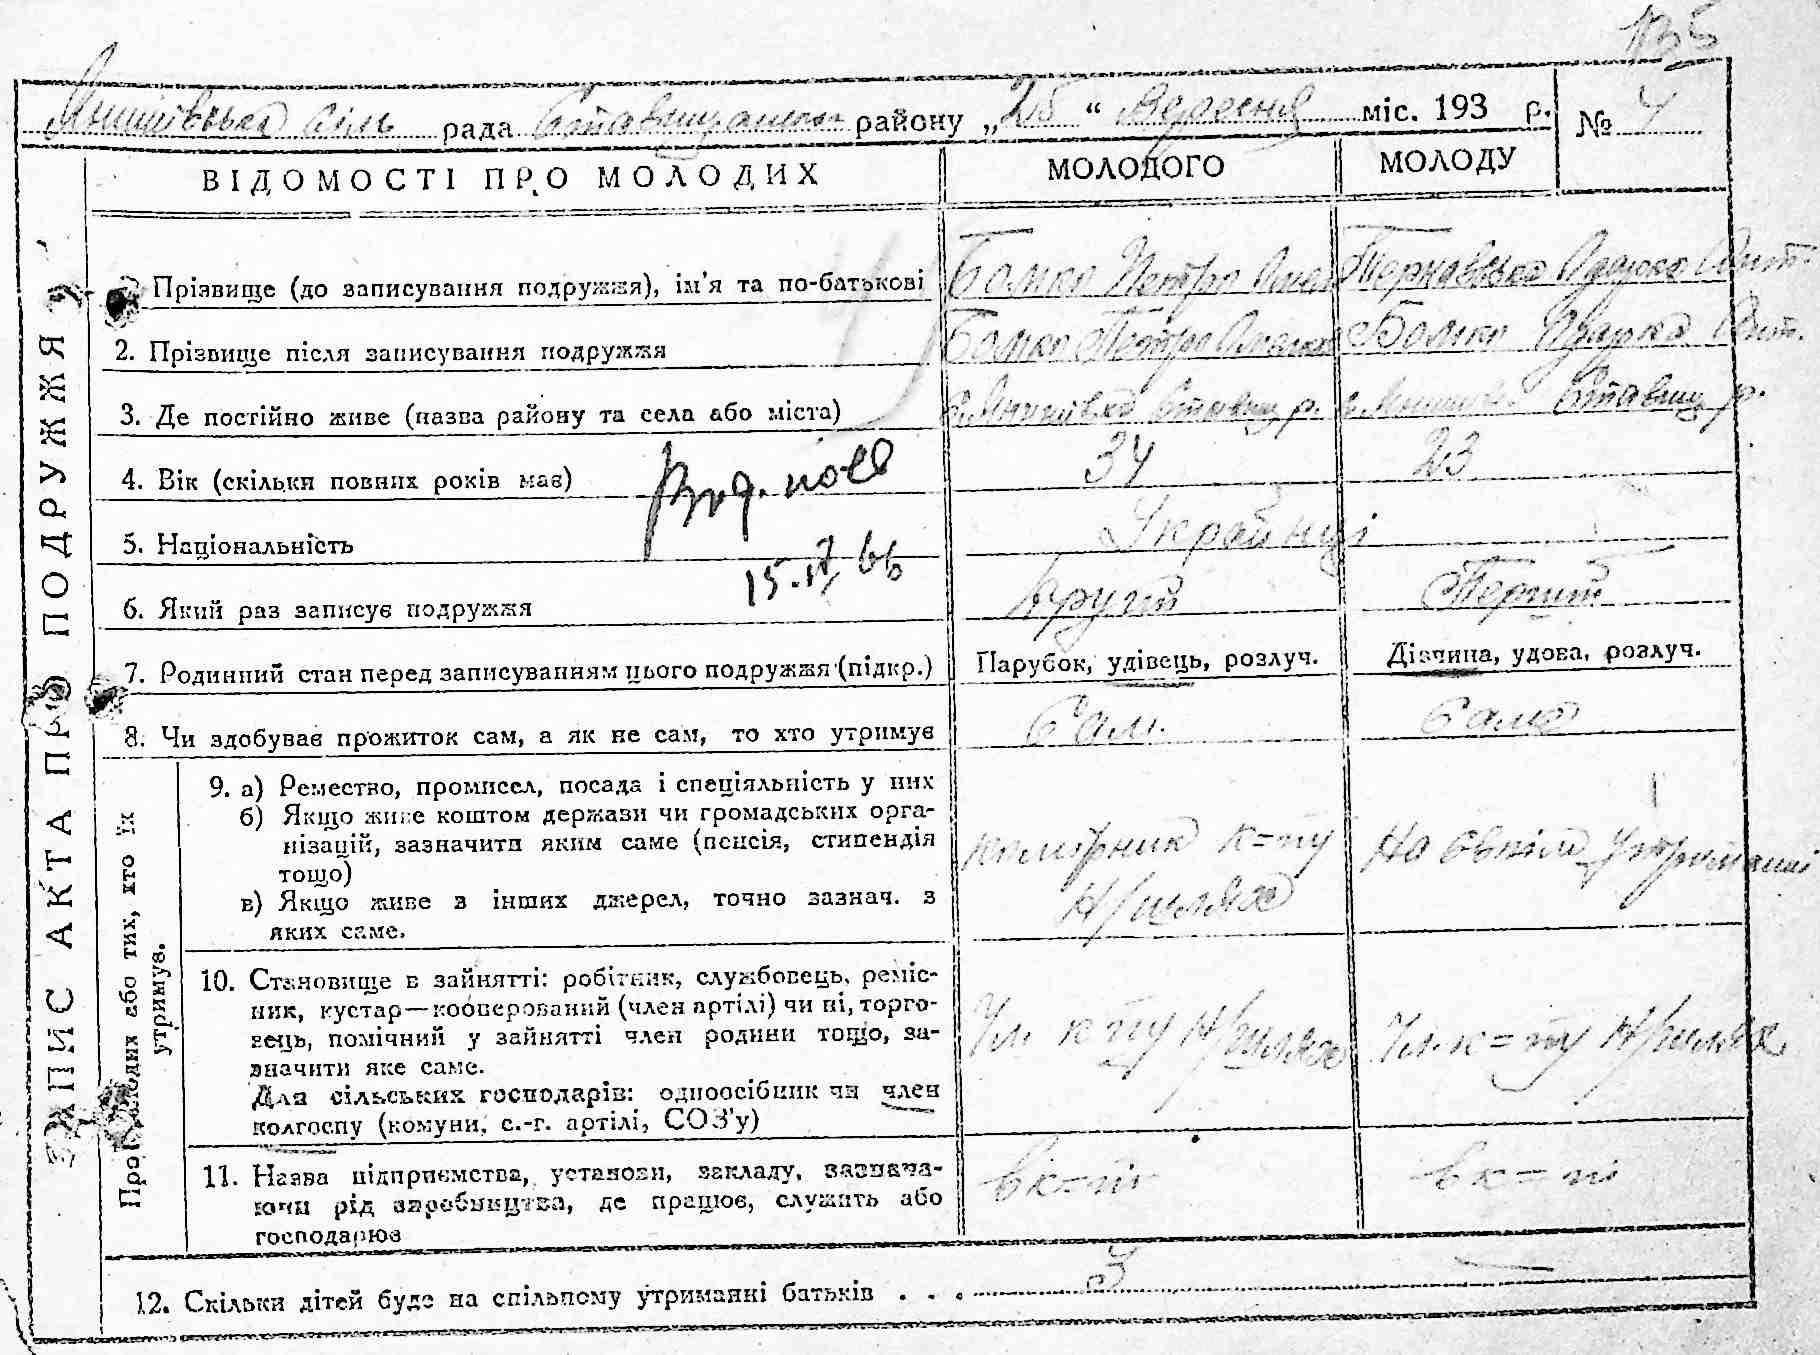 135
сіль рада району „25 “ Вересня міс. 193 р. № 4
ВІДОМОСТІ ПРО МОЛОДИХ МОЛОДОГО МОЛОДУ
ЗАПИС АКТА ПРО ПОДРУЖЖЯ
Прізвище (до записування подружжя), ім'я та по-батькові Петро
2. Прізвище після записування подружжя Петро
3. Де постійно живе (назва району та села або міста) р. р.
4. Вік (скільки повних років має) 34 23
5. Національність Українці
15. IV 66
6. Який раз записує подружжя
7. Родинний стан перед записуванням цього подружжя (підкр.) Парубок, удівець, розлуч. Дівчина, удова, розлуч.
8. Чи здобуває прожиток сам, а як не сам, то хто утримує Сам. Сама
Про молодих або тих, хто їх утримує.
9. а) Ремество, промисел, посада і спеціяльність у них
б) Якщо живе коштом держави чи громадських орга-
нізацій, зазначити яким саме (пенсія, стипендія
тощо)
в) Якщо живе з інших джерел, точно зазнач. з
яких саме.
к=пу
На утриманні
10. Становище в зайнятті: робітник, службовець, реміс-
ник, кустар—кооперований (член артілі) чи ні, торго-
вець, помічний у зайнятті член родини тощо, за-
значити яке саме.
Для сільських господарів: одноосібник чи член
колгоспу (комуни, с.-г. артілі, СОЗ'у)
Чл. к=пу
11. Назва підприємства, установи, закладу, зазнача-
ючи рід виробництва, де працює, служить або
господарює
в к=пі
12. Скільки дітей буде на спільному утриманні батьків . . . 3